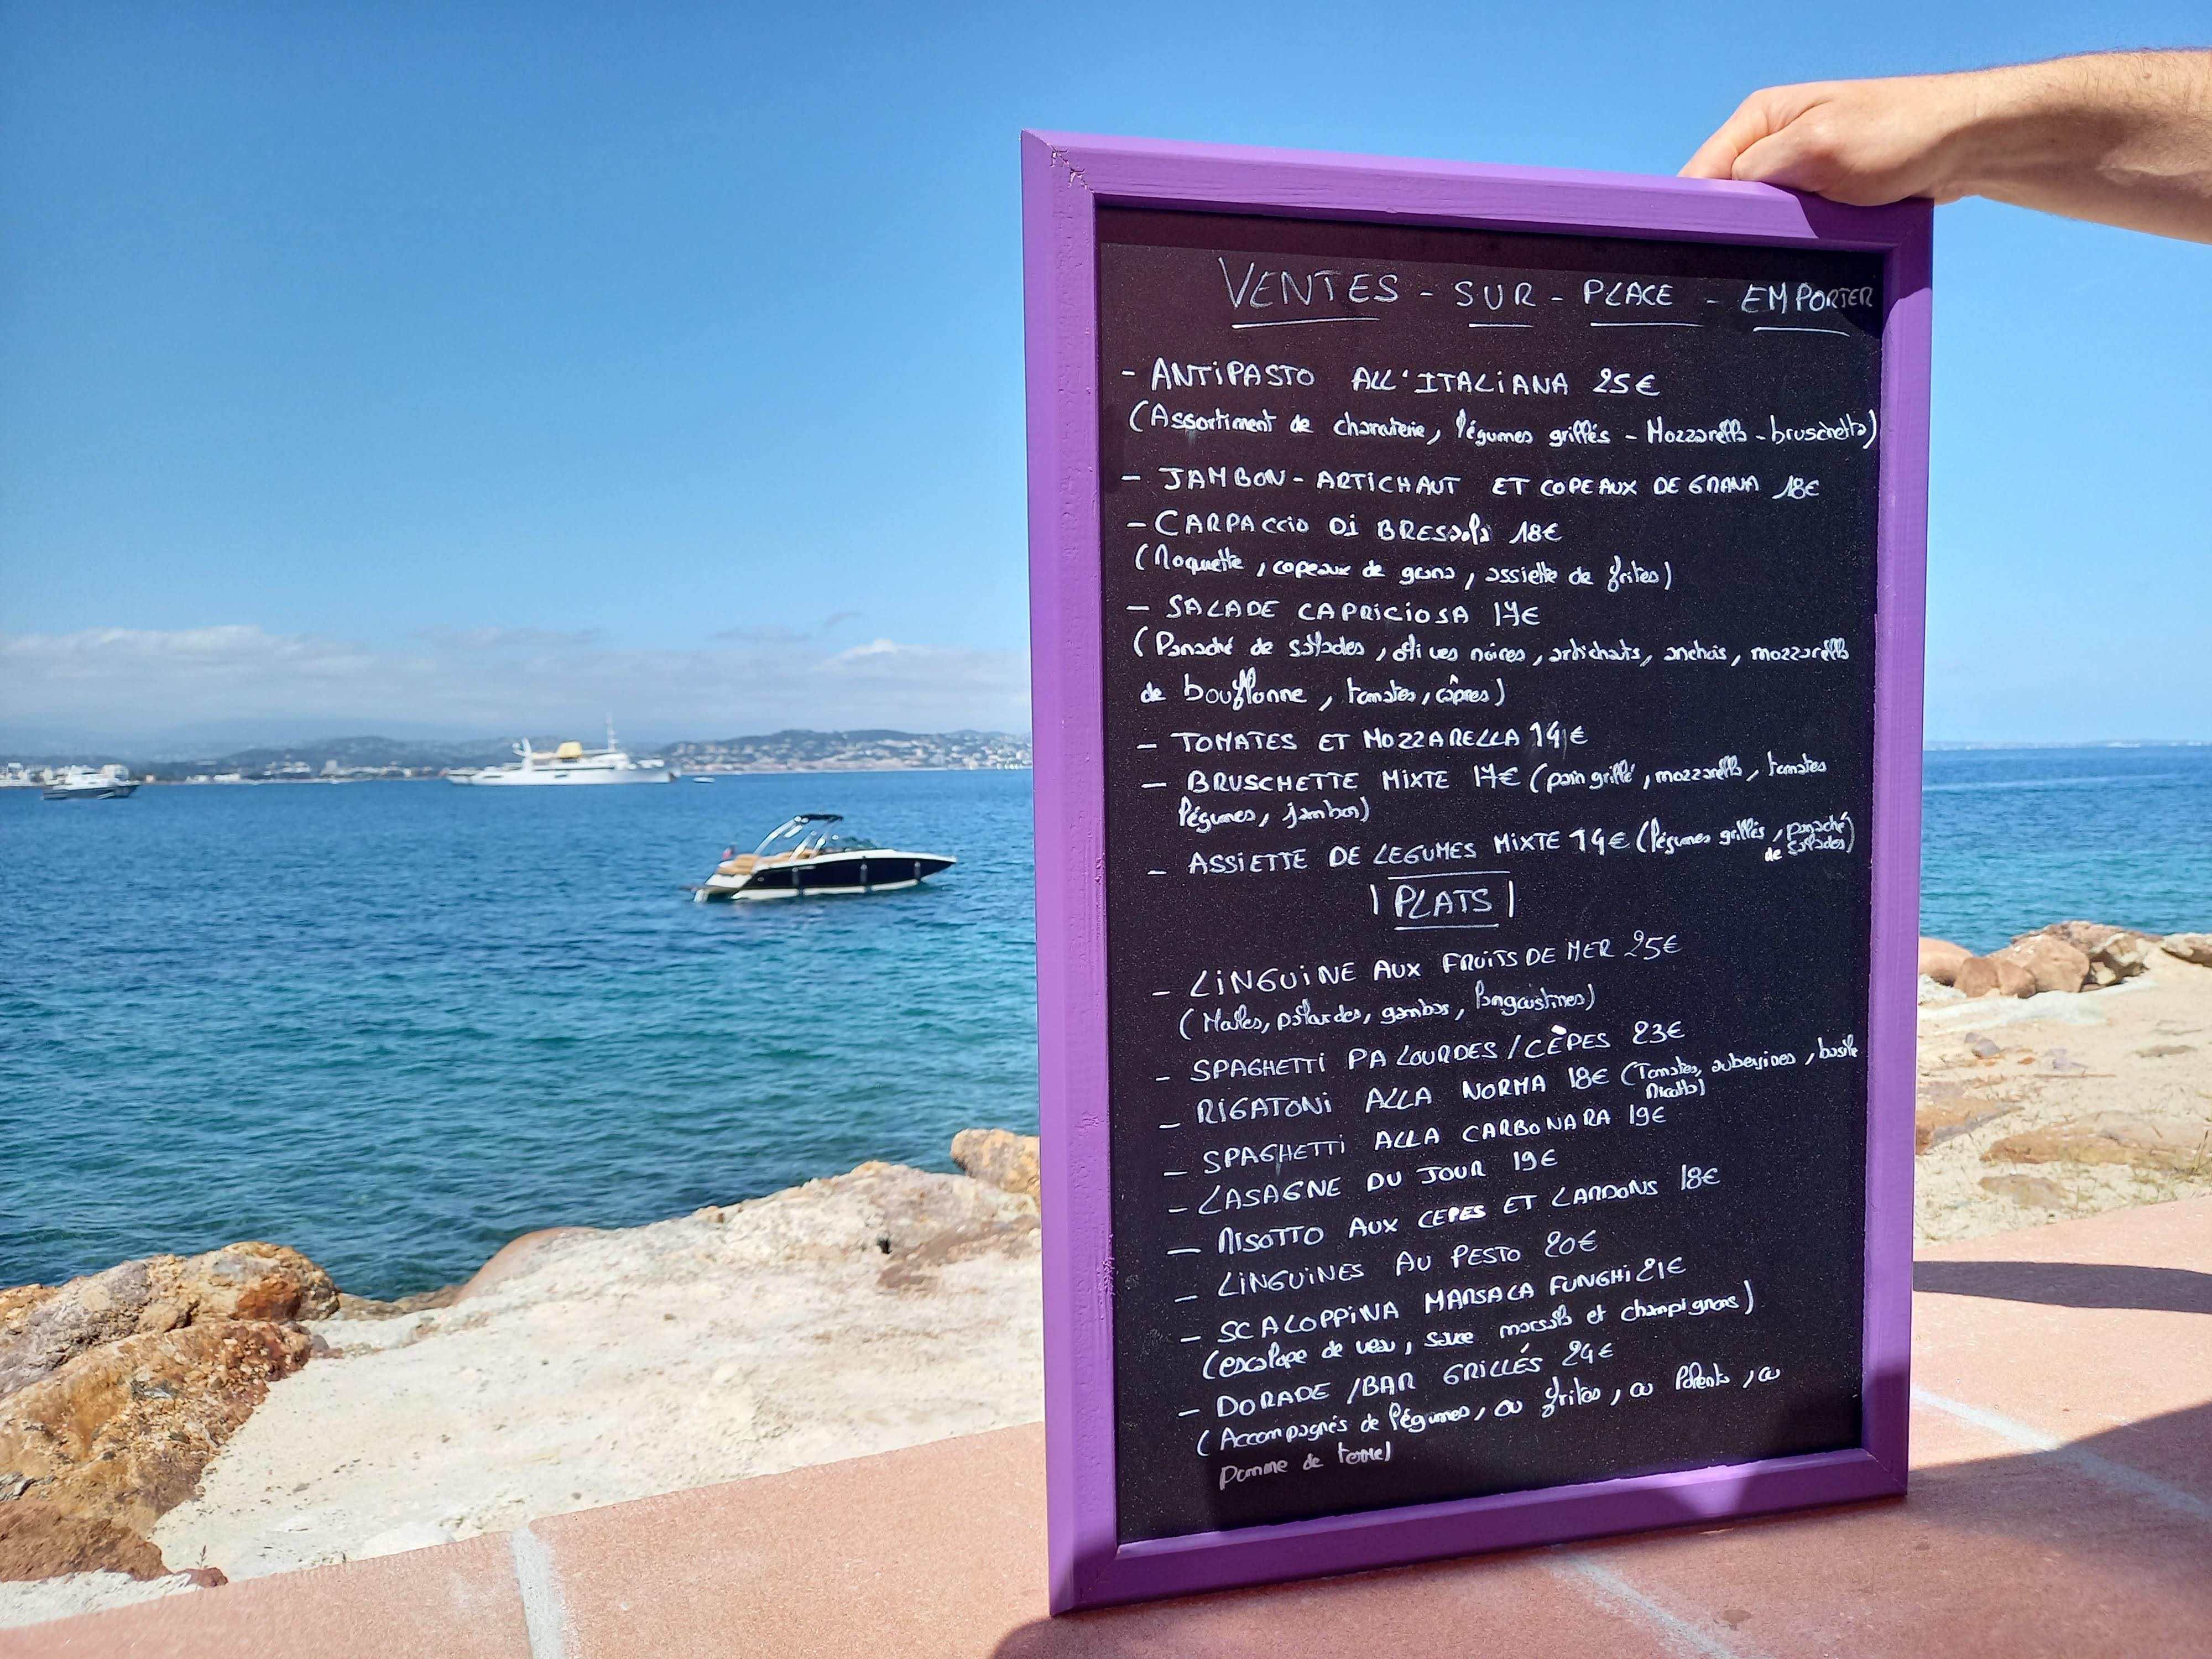 VENTES - SUR - PLACE - EMPORTER
- ANTIPASTO ALL'ITALIANA 25€
(Assortiment de charcuterie, légumes grillés - Mozzarella - bruschetta)
- JAMBON - ARTICHAUT ET COPEAUX DE GRANA 18€
- CARPACCIO DI BRESaola 18€
(Roquette, copeaux de grana, assiette de frites)
- SALADE CAPRICIOSA 17€
(Panaché de salades, olives noires, artichauts, anchois, mozzarella
de boufflonne, tomates, câpres)
- TOMATES ET MOZZARELLA 14€
- BRUSCHETTE MIXTE 17€ (pain grillé, mozzarella, tomates
légumes, jambon)
- ASSIETTE DE LEGUMES MIXTE 14€ (légumes grillés, panaché
de salades)
| PLATS |
- LINGUINE AUX FRUITS DE MER 25€
(Moules, palourdes, gambas, langoustines)
- SPAGHETTI PALOURDES / CÈPES 23€
- RIGATONI ALLA NORMA 18€ (Tomates, aubergines, basilic
Ricotta)
- SPAGHETTI ALLA CARBONARA 19€
- LASAGNE DU JOUR 19€
- RISOTTO AUX CEPES ET LARDONS 18€
- LINGUINES AU PESTO 20€
- SCALOPPINA MARSALA FUNGHI 21€
(escalope de veau, sauce marsala et champignons)
- DORADE / BAR GRILLÉS 24€
(Accompagnés de légumes, ou frites, ou Polenta, ou
pomme de terre)